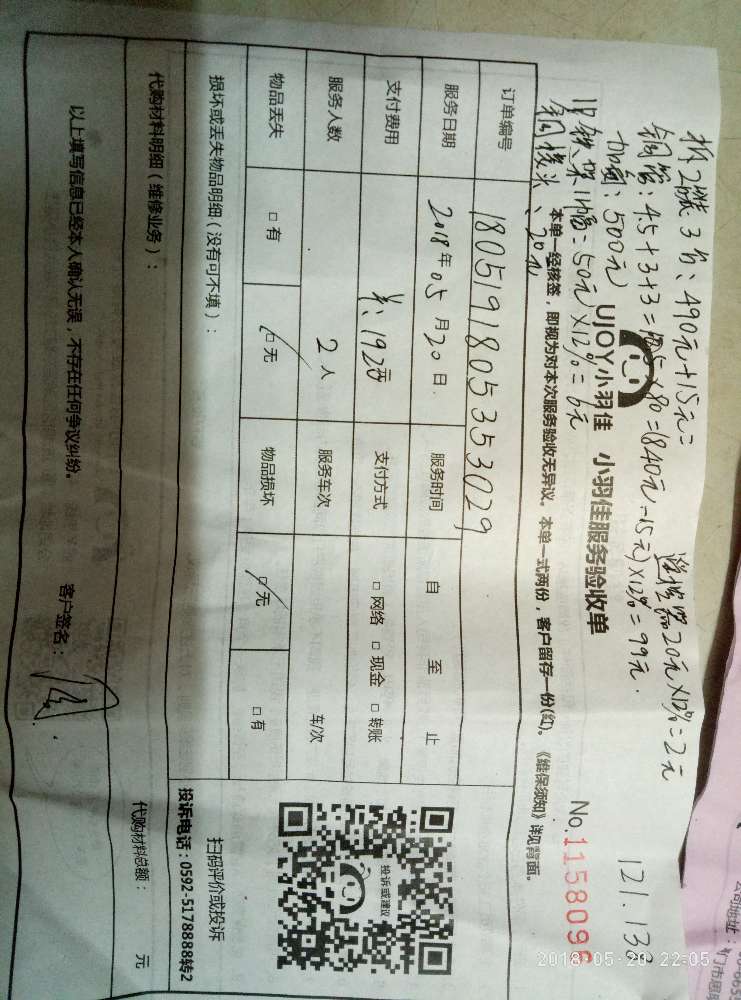 拆2装3
490元+15元=
铜管：4.5+3+3=10.5×80=(840元-15元)×12%=99元.
20元×12%=2元
加氟：500元
旧铁架1幅=50元×12%=6元
20元
121.138
UJOY小羽佳 小羽佳服务验收单
No.1158096
本单一经核签，即视为对本次服务验收无异议。本单一式两份，客户留存一份(红)。《维保须知》详见背面。
订单编号 1805191805353029
服务日期 2018年05月20日 服务时间 自 至 止
支付费用 支付方式 □网络 □现金 □转账
服务人数 2人 服务车次 车/次
物品丢失 □有 □无 物品损坏 □无 □有
损坏或丢失物品明细（没有可不填）：
代购材料明细（维修业务）： 代购材料总额： 元
以上填写信息已经本人确认无误，不存在任何争议纠纷。 客户签名：
投诉或建议
扫码评价或投诉
投诉电话：0592-5178888转2
2018-05-20 22:05